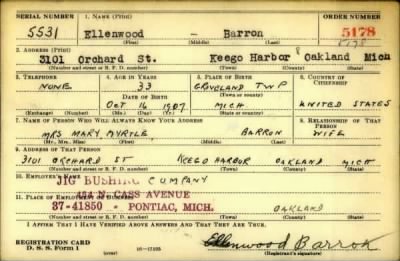 SERIAL NUMBER 1. NAME (Print) ORDER NUMBER
5531 Ellenwood — Barron 5178
(First) (Middle) (Last)
2. ADDRESS (Print)
3101 Orchard St. Keego Harbor Oakland Mich
(Number and street or R. F. D. number) (Town) (County) (State)
3. TELEPHONE 4. AGE IN YEARS 5. PLACE OF BIRTH 6. COUNTRY OF CITIZENSHIP
NONE 33 GROVELAND TWP
DATE OF BIRTH (Town or county)
OCT 16 1907 MICH UNITED STATES
(Exchange) (Number) (Mo.) (Day) (Yr.) (State or country)
7. NAME OF PERSON WHO WILL ALWAYS KNOW YOUR ADDRESS 8. RELATIONSHIP OF THAT PERSON
MRS MARY MYRTLE BARRON WIFE
(Mr., Mrs., Miss) (First) (Middle) (Last)
9. ADDRESS OF THAT PERSON
3101 ORCHARD ST KEEGO HARBOR OAKLAND MICH
(Number and street or R. F. D. number) (Town) (County) (State)
10. EMPLOYER'S NAME
JIG BUSHING COMPANY
464 N. CASS AVENUE
11. PLACE OF EMPLOYMENT OR BUSINESS
37-41850 - PONTIAC, MICH. OAKLAND
(Number and street or R. F. D. number) (Town) (County) (State)
I AFFIRM THAT I HAVE VERIFIED ABOVE ANSWERS AND THAT THEY ARE TRUE.
REGISTRATION CARD
D. S. S. Form 1 16—17105 Ellenwood Barron
(Registrant's signature)